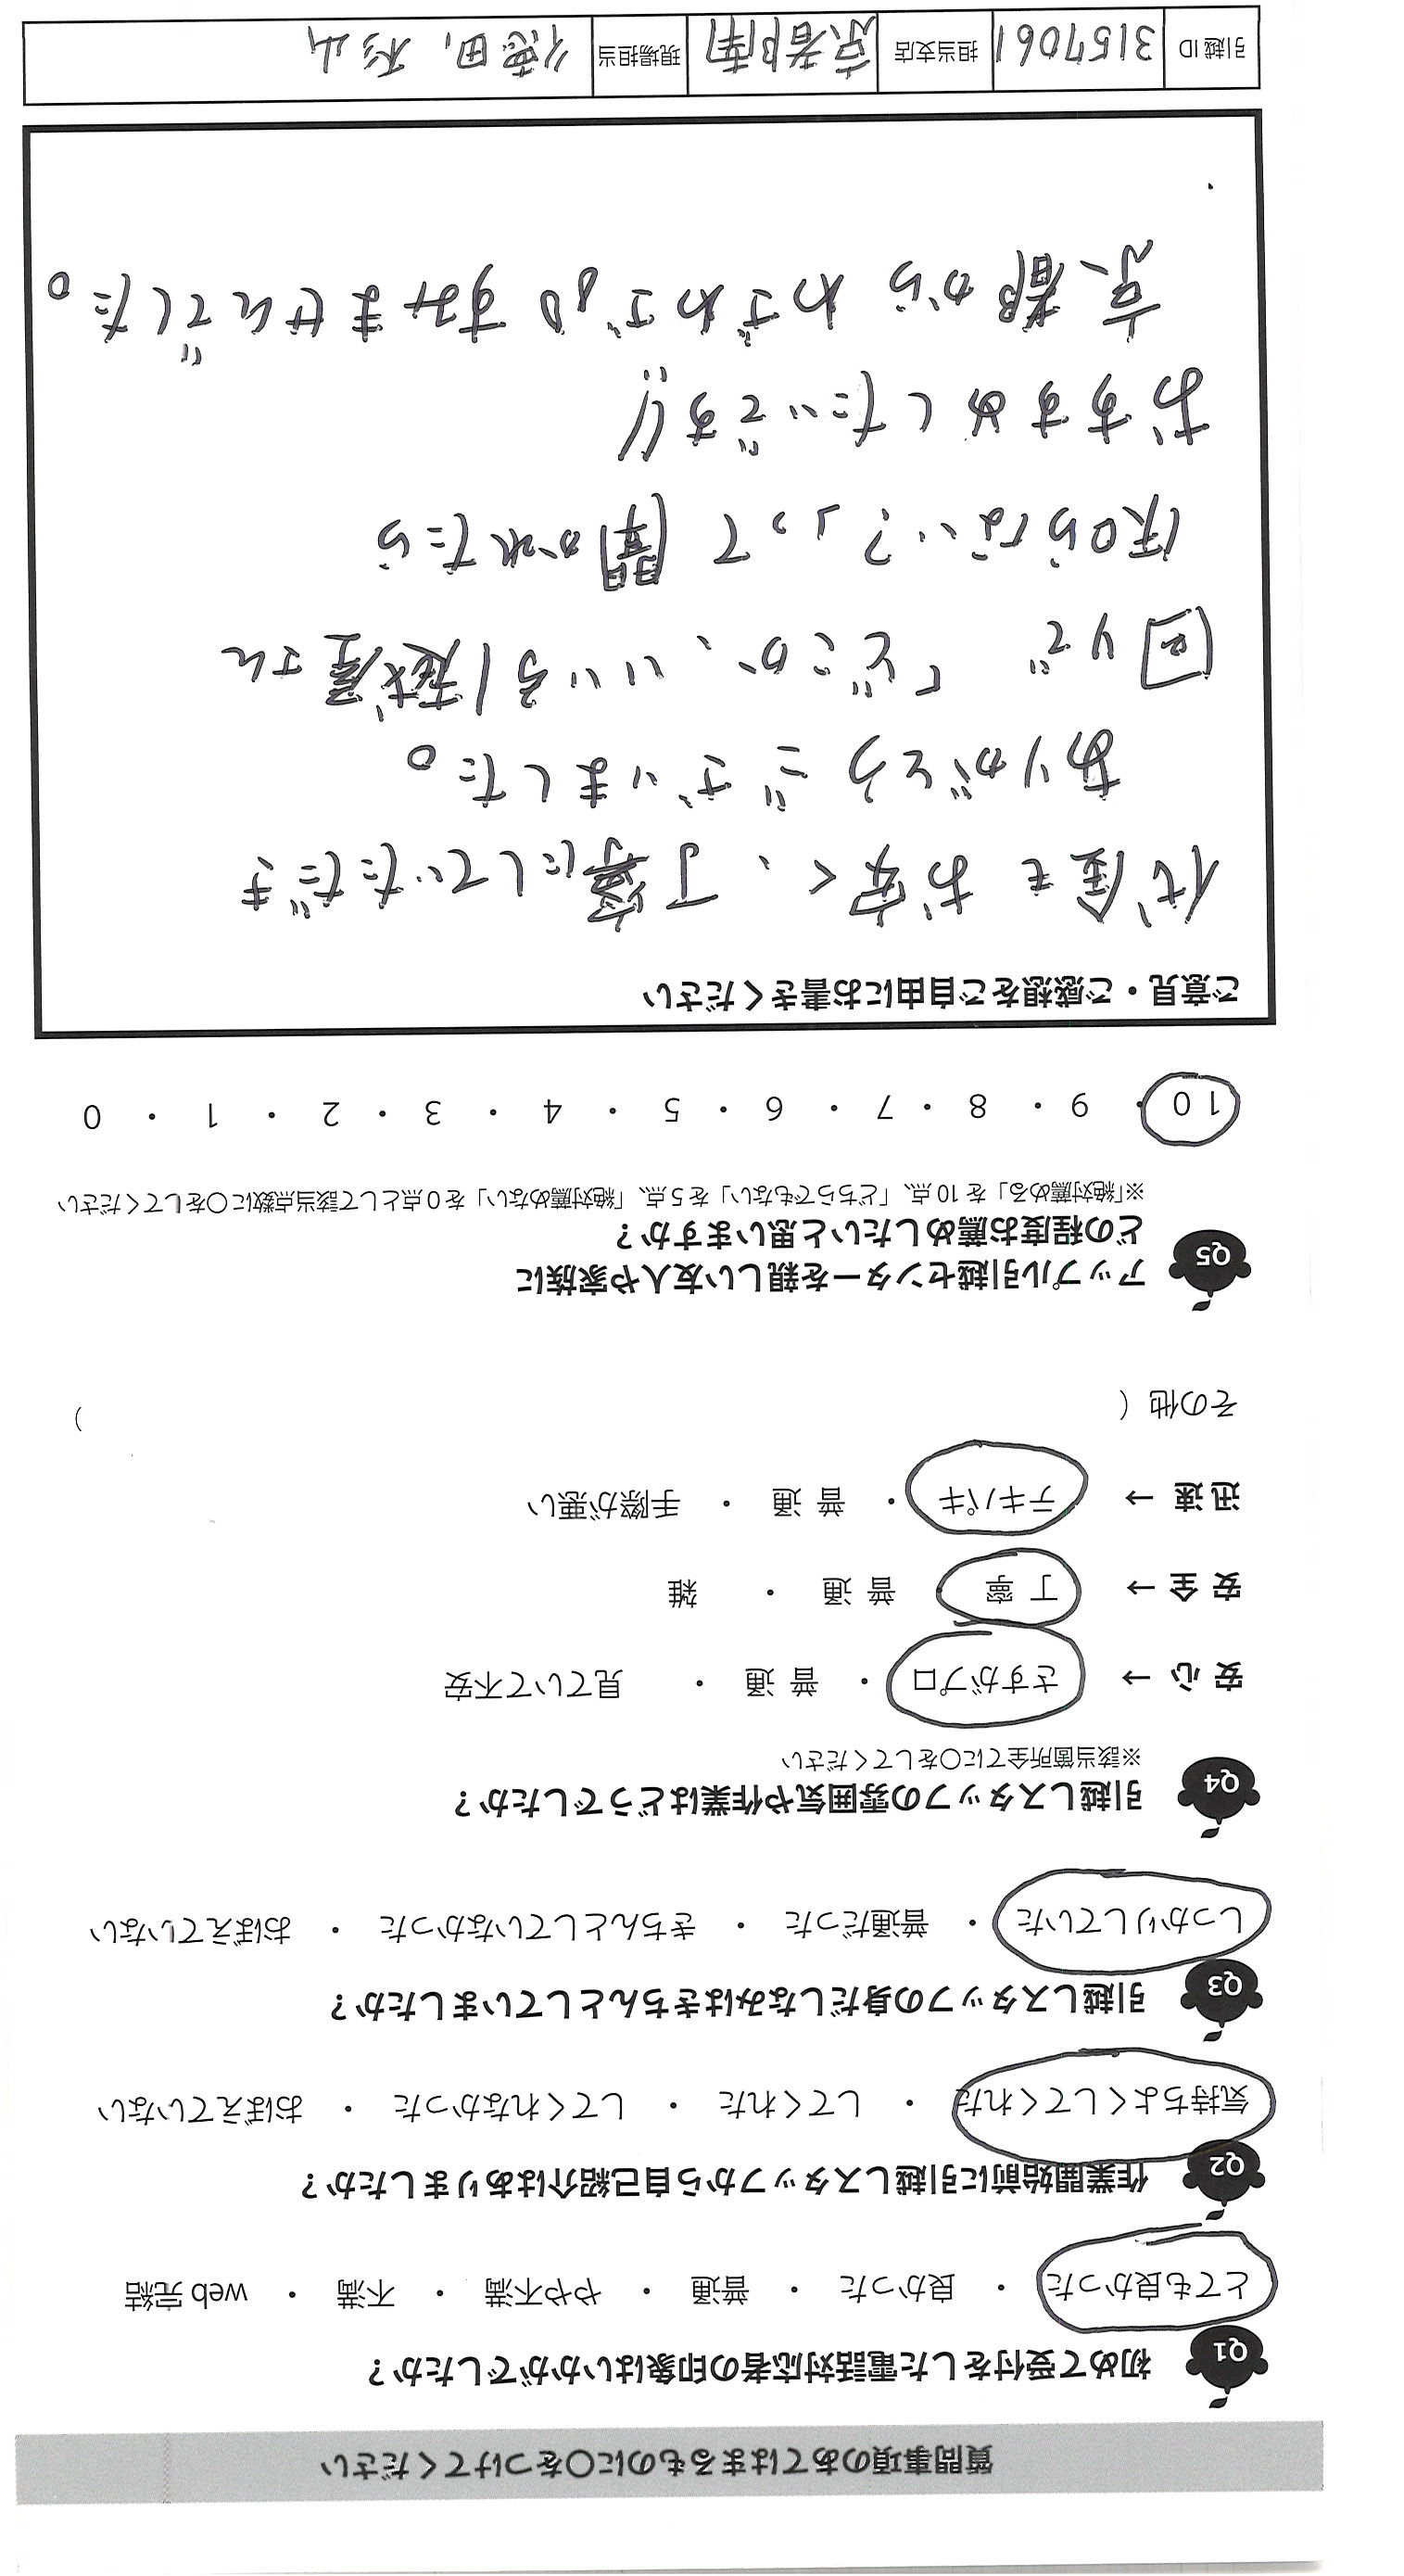 質問事項のあてはまるものに○をつけてください
Q1 初めて受付をした電話対応者の印象はいかがでしたか？
とても良かった ・ 良かった ・ 普通 ・ やや不満 ・ 不満 ・ web 完結
Q2 作業開始前に引越しスタッフから自己紹介はありましたか？
気持ちよくしてくれた ・ してくれた ・ してくれなかった ・ おぼえていない
Q3 引越しスタッフの身だしなみはきちんとしていましたか？
しっかりしていた ・ 普通だった ・ きちんとしていなかった ・ おぼえていない
Q4 引越しスタッフの雰囲気や作業はどうでしたか？
※該当箇所全てに○をしてください
安心 → さすがプロ ・ 普通 ・ 見ていて不安
安全 → 丁寧 普通 ・ 雑
迅速 → テキパキ ・ 普通 ・ 手際が悪い
その他（ ）
Q5 アップル引越センターを親しい友人や家族に
どの程度お薦めしたいと思いますか？
※「絶対薦める」を 10 点、「どちらでもない」を 5 点、「絶対薦めない」を 0 点として該当点数に○をしてください
10 ・ 9 ・ 8 ・ 7 ・ 6 ・ 5 ・ 4 ・ 3 ・ 2 ・ 1 ・ 0
ご意見・ご感想をご自由にお書きください
代金もお安く、丁寧にしていただき
ありがとうございました。
回りで「どこか、いい引越屋さん
知らない？」って聞かれたら
おすすめしたいです!!
京都からわざわざすみませんでした。
引越ID 3157061 担当支店 京都南 現場担当 徳田、杉山